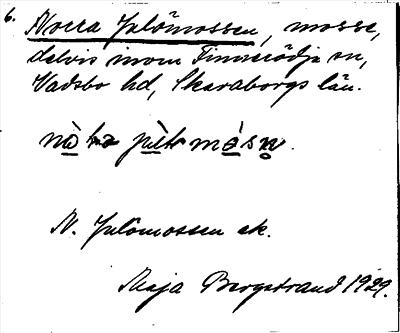 6.
Norra Julömossen, mosse,
delvis inom Finnerödja sn,
Vadsbo hd, Skaraborgs län.
N. Julömossen ek.
Maja Bergstrand 1929.